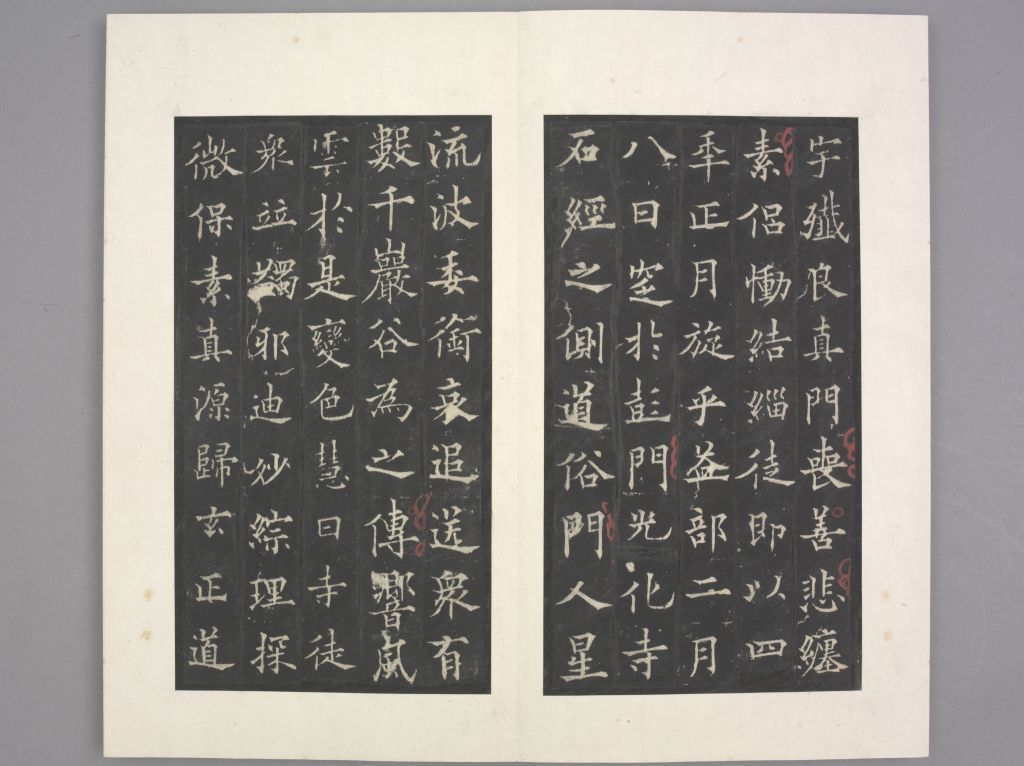 宇殲良真門喪善悲纏
素侶慟結緇徒即以四
年正月旋乎益部二月
八日窆於彭門光化寺
石經之側道俗門人星
流波委銜哀追送眾有
數千巖谷為之傳響風
雲於是變色慧日寺徒
眾竝蠲邪迪妙綜理探
微保素真源歸玄正道